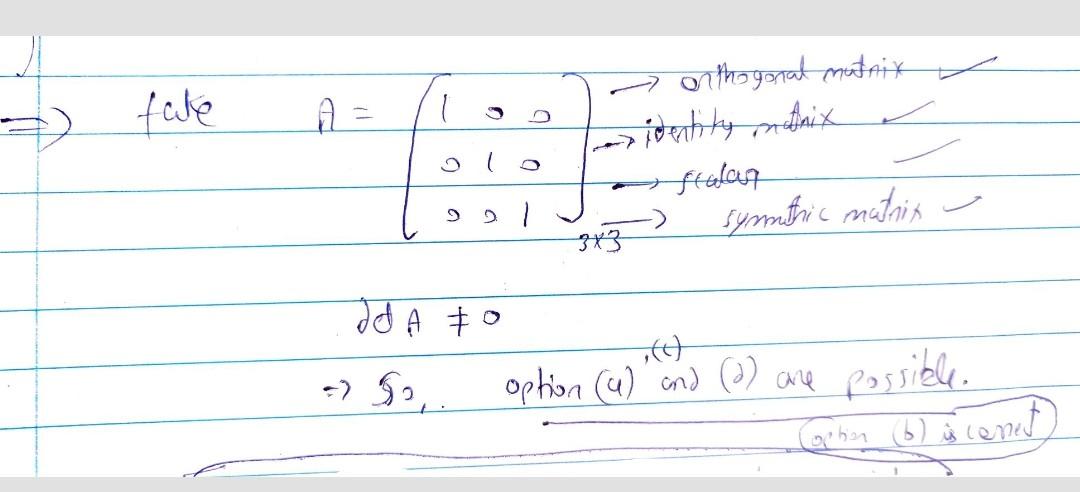 => take A = 1 0 0 → orthogonal matrix ✓
0 1 0 → identity matrix ✓
→ scalar ✓
0 0 1 3x3 → symmtric matrix ✓
det A ≠ 0
=> So, option (a) ,(c) and (d) are possible.
option (b) is correct